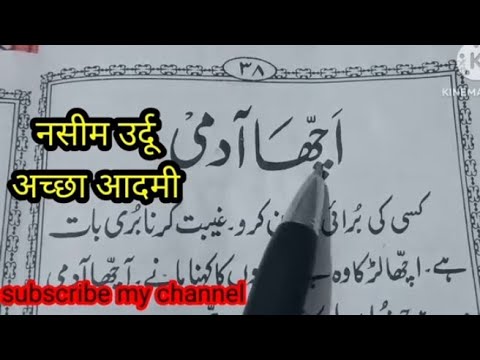 ۳۸
KINEMA
اَچّھا آدمی
नसीम उर्दू
अच्छा आदमी
کسی کی بُرائی نہ کرو۔ غیبت کرنا بُری بات
ہے۔ اچھا لڑکا وہ ہے کا کہنا مانے۔ اچھا آدمی
subscribe my channel